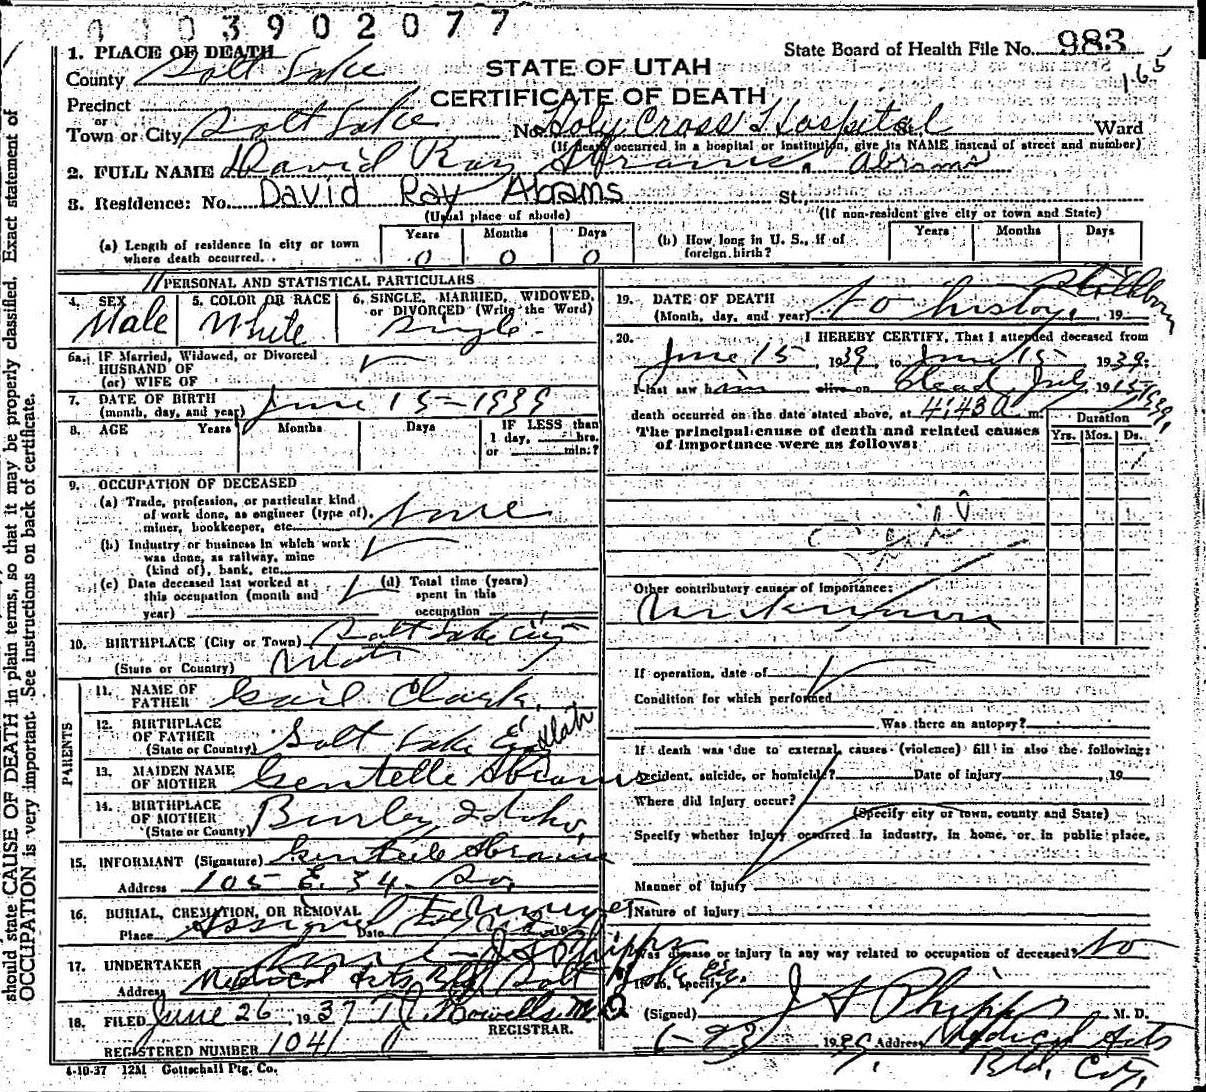 3902077
1. PLACE OF DEATH
State Board of Health File No. 983
County Salt Lake
STATE OF UTAH
165
CERTIFICATE OF DEATH
Precinct
or
Town or City Salt Lake No. Holy Cross Hospital St. Ward
(If death occurred in a hospital or institution, give its NAME instead of street and number)
2. FULL NAME David Ray Abrams. Abrams
3. Residence: No. David Ray Abrams St.,
(Usual place of abode) (If non-resident give city or town and State)
(a) Length of residence in city or town where death occurred.. Years 0 Months 0 Days 0
(b) How long in U. S., if of foreign birth? Years Months Days
PERSONAL AND STATISTICAL PARTICULARS
4. SEX Male
5. COLOR OR RACE White
6. SINGLE, MARRIED, WIDOWED, or DIVORCED (Write the Word) Single.
6a. IF Married, Widowed, or Divorced
HUSBAND OF
(or) WIFE OF
7. DATE OF BIRTH
(month, day, and year) June 15-1939
8. AGE Years Months Days IF LESS than
1 day, hrs.
or min.?
9. OCCUPATION OF DECEASED
(a) Trade, profession, or particular kind
of work done, as engineer (type of),
miner, bookkeeper, etc. none
(b) Industry or business in which work
was done, as railway, mine
(kind of), bank, etc.
(c) Date deceased last worked at
this occupation (month and
year)
(d) Total time (years)
spent in this
occupation
10. BIRTHPLACE (City or Town) Salt Lake City
(State or Country) Utah
PARENTS
11. NAME OF
FATHER Gail Clark,
12. BIRTHPLACE
OF FATHER
(State or County) Salt Lake City Utah
13. MAIDEN NAME
OF MOTHER Gentelle Abrams
14. BIRTHPLACE
OF MOTHER
(State or County) Burley Idaho,
15. INFORMANT (Signature) Abrams
Address 105 E. 34. So,
16. BURIAL, CREMATION, OR REMOVAL
Place Date
17. UNDERTAKER J S Phipps
Address Medical Arts Bld Salt Lake City.
18. FILED June 26 1937 M. D.
REGISTRAR.
REGISTERED NUMBER 1041
4-10-37 12M Gottschall Ptg. Co.
Stillborn
19. DATE OF DEATH
(Month, day, and year) no history. , 19
20. I HEREBY CERTIFY, That I attended deceased from
June 15, 1939, to June 15 1939;
I last saw him alive on dead, July 15 1939,
death occurred on the date stated above, at 4:43 a m.
The principal cause of death and related causes
of importance were as follows:
Duration
Yrs. Mos. Ds.
Other contributory causes of importance:
Unknown
If operation, date of
Condition for which performed
Was there an autopsy?
If death was due to external causes (violence) fill in also the following:
Accident, suicide, or homicide? Date of injury , 19
Where did injury occur?
(Specify city or town, county and State)
Specify whether injury occurred in industry, in home, or in public place.
Manner of injury
Nature of injury
Was disease or injury in any way related to occupation of deceased? No
If so, specify
(Signed) J S Phipps M. D.
6-23 1939, Address Medical Arts
Bld, City,
should state CAUSE OF DEATH in plain terms, so that it may be properly classified. Exact statement of
OCCUPATION is very important. See instructions on back of certificate.